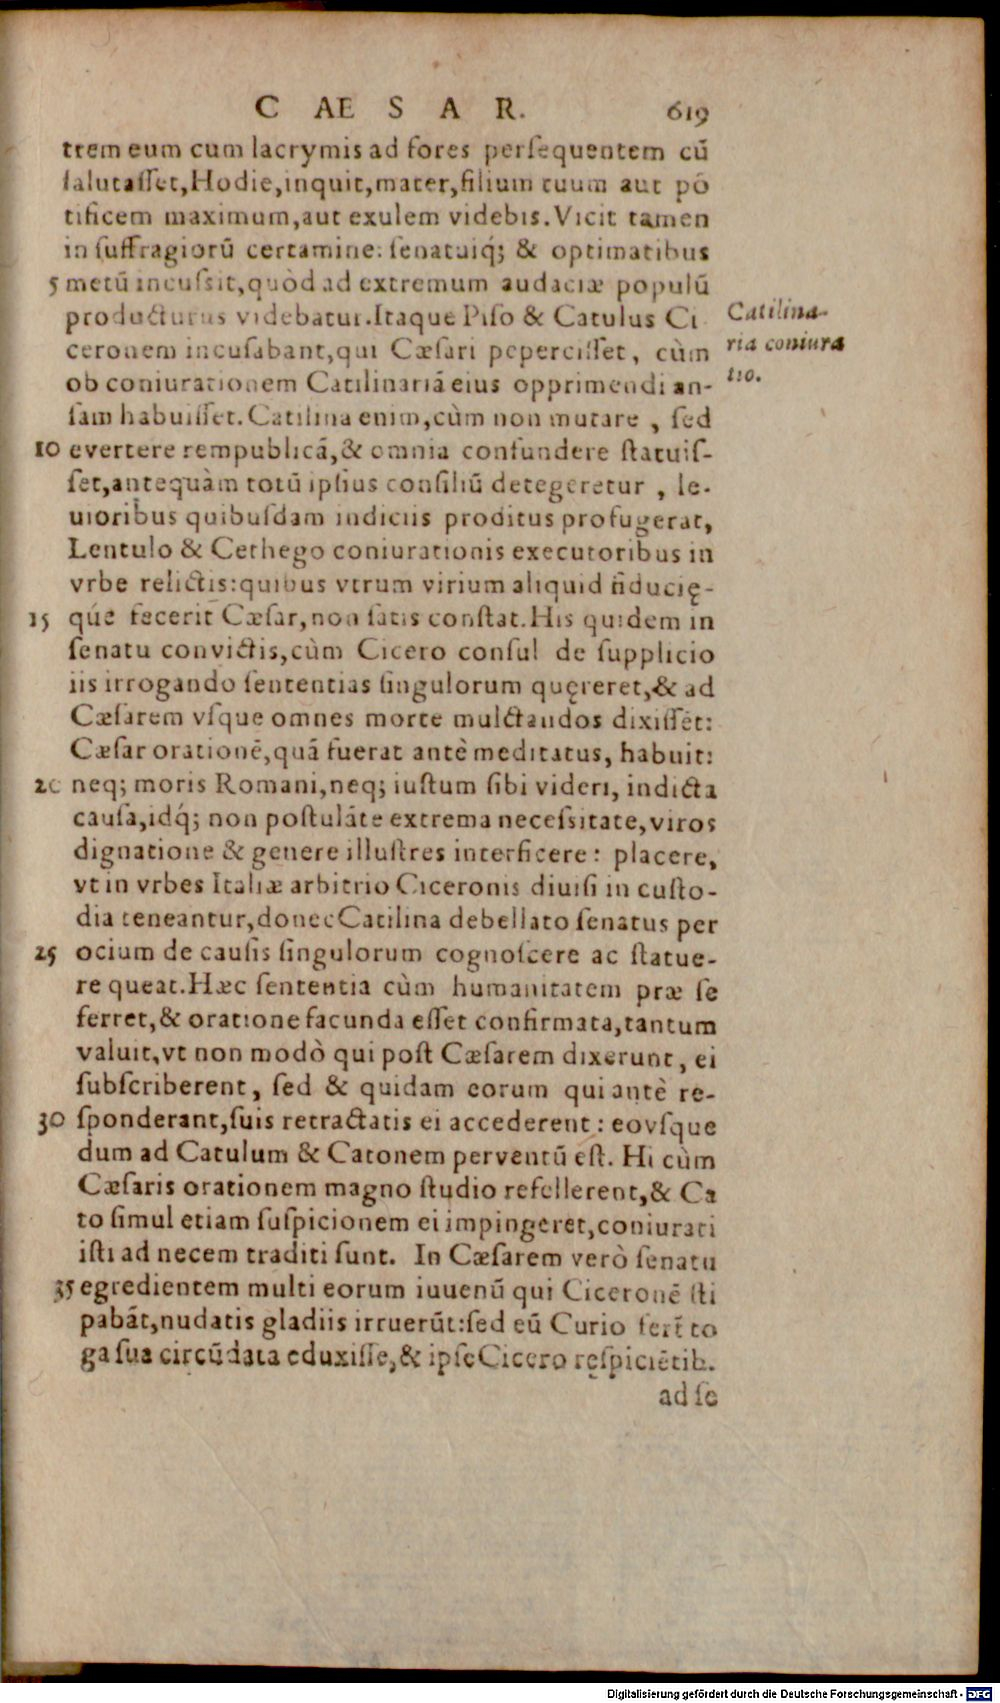 C AE S A R. 619
trem eum cum lacrymis ad fores persequentem cũ
salutasset, Hodie, inquit, mater, filium tuum aut põ
tificem maximum, aut exulem videbis. Vicit tamen
in suffragiorũ certamine: senatuiq́; & optimatibus
5 metũ incussit, quòd ad extremum audaciæ populũ
producturus videbatur. Itaque Piso & Catulus Ci
Catilina-
ceronem incusabant, qui Cæsari pepercisset, cùm
ria coniura
ob coniurationem Catilinariã eius opprimendi an-
tio.
sam habuisset. Catilina enim, cùm non mutare, sed
10 evertere rempublicã, & omnia confundere statuis-
set, antequàm totũ ipsius consiliũ detegeretur, le-
uioribus quibusdam indiciis proditus profugerat,
Lentulo & Cethego coniurationis executoribus in
vrbe relictis: quibus vtrum virium aliquid fiducię-
15 qúe fecerit Cæsar, non satis constat. His quidem in
senatu convictis, cùm Cicero consul de supplicio
iis irrogando sententias singulorum quęreret, & ad
Cæsarem vsque omnes morte mulctandos dixissẽt:
Cæsar orationẽ, quã fuerat antè meditatus, habuit:
20 neq; moris Romani, neq; iustum sibi videri, indicta
causa, idq́; non postulãte extrema necessitate, viros
dignatione & genere illustres interficere: placere,
vt in vrbes Italiæ arbitrio Ciceronis divisi in custo-
dia teneantur, donec Catilina debellato senatus per
25 ocium de causis singulorum cognoscere ac statue-
re queat. Hæc sententia cùm humanitatem præ se
ferret, & oratione facunda esset confirmata, tantum
valuit, vt non modò qui post Cæsarem dixerunt, ei
subscriberent, sed & quidam eorum qui antè re-
30 sponderant, suis retractatis ei accederent: eovsque
dum ad Catulum & Catonem perventũ est. Hi cùm
Cæsaris orationem magno studio refellerent, & Ca
to simul etiam suspicionem ei impingeret, coniurati
isti ad necem traditi sunt. In Cæsarem verò senatu
35 egredientem multi eorum iuuenũ qui Ciceronẽ sti
pabãt, nudatis gladiis irruerũt: sed eũ Curio fert̃ to
ga sua circũdata eduxisse, & ipse Cicero respiciẽtib.
ad se
Digitalisierung gefördert durch die Deutsche Forschungsgemeinschaft - DFG